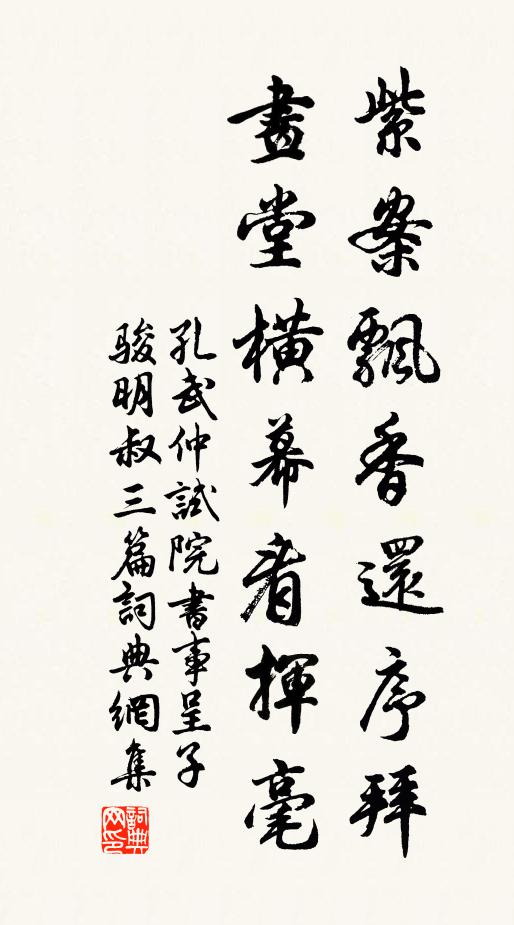 紫案飄香還序拜
畫堂橫幕看揮毫
孔武仲試院書事呈子
駿明叔三篇詞典網集
詞典網印